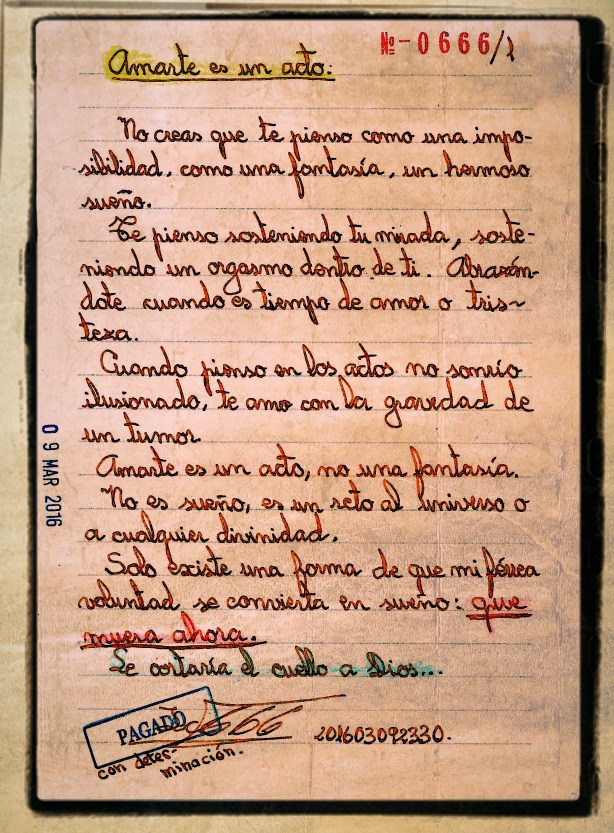 Nº-0666/1
Amarte es un acto:
No creas que te pienso como una impo-
sibilidad, como una fantasía, un hermoso
sueño.
Te pienso sosteniendo tu mirada, soste-
niendo un orgasmo dentro de ti. Abrazán-
dote cuando es tiempo de amor o tris-
teza.
Cuando pienso en los actos no sonrío
ilusionado, te amo con la gravedad de
un tumor.
Amarte es un acto, no una fantasía.
No es sueño, es un reto al universo o
a cualquier divinidad.
Solo existe una forma de que mi férrea
voluntad se convierta en sueño: que
muera ahora.
Le cortaría el cuello a Dios...
0 9 MAR 2016
PAGADO
con deter-
minación.
201603092330.